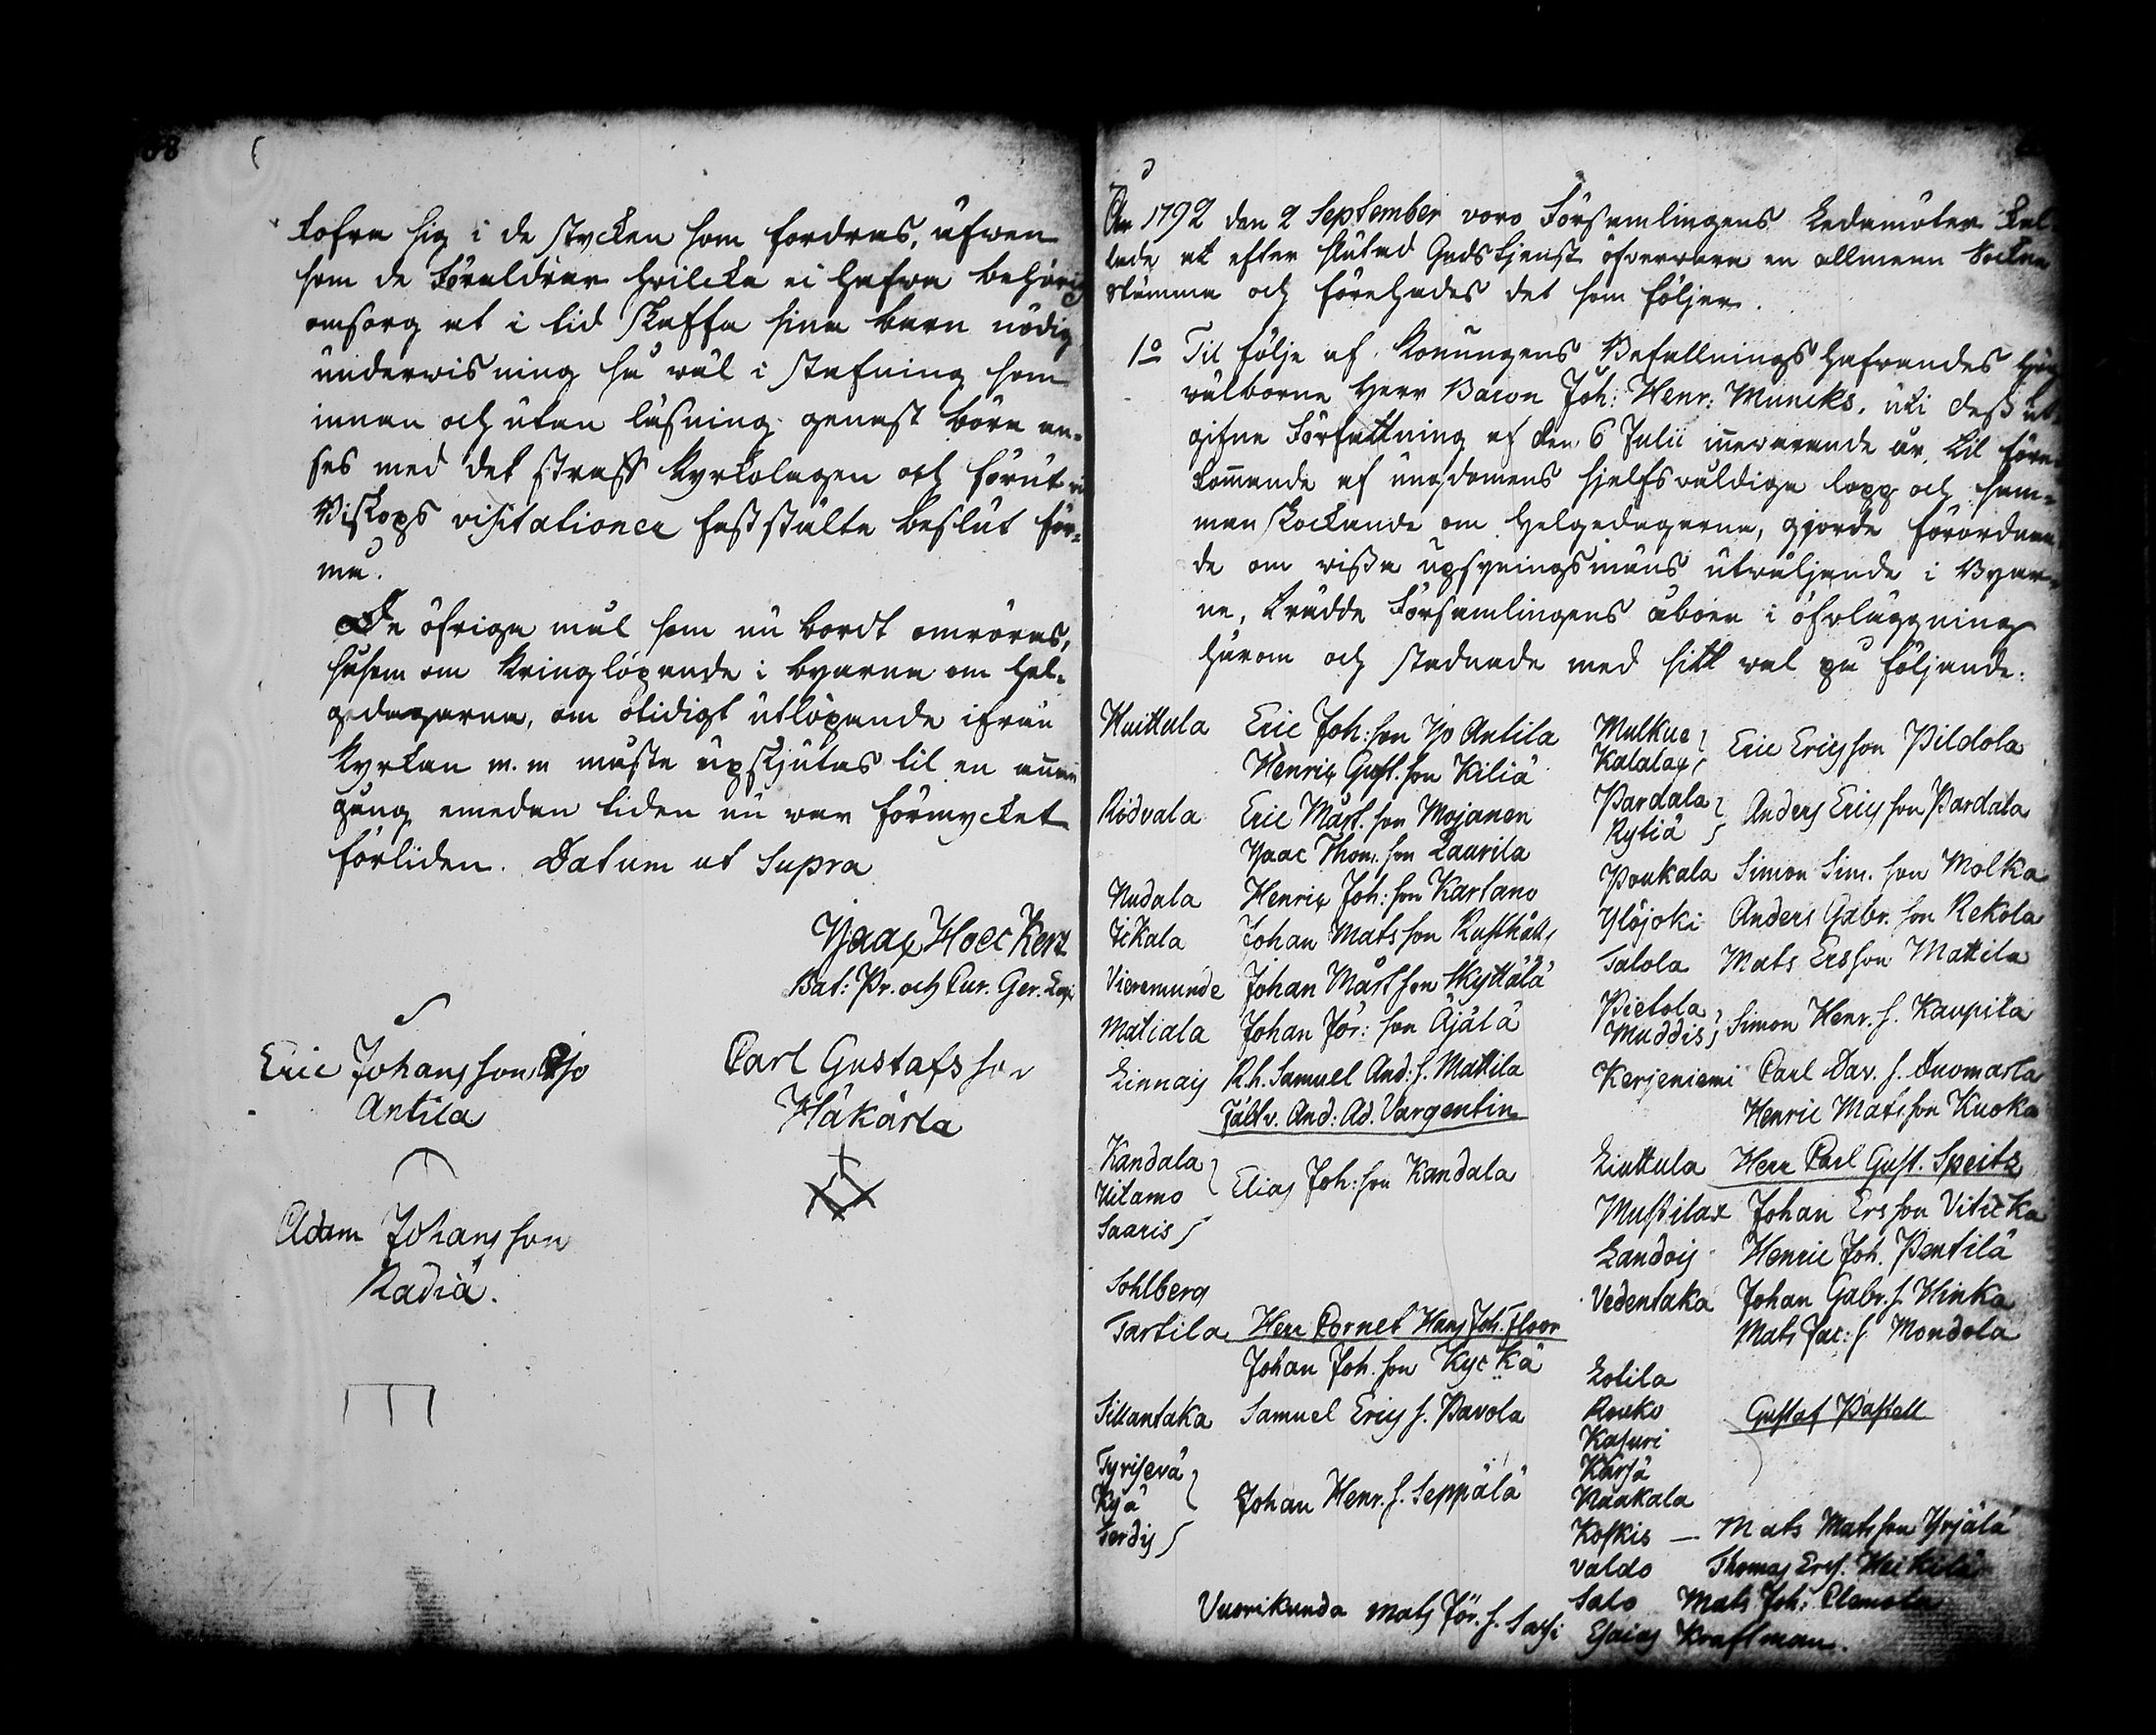 68
kofra sig i de stycken som fordras, äfwen
som de Föräldrar hvilcka ei hafwa behörig
omsorg at i tid skaffa sina barn nödig
underwisning så wäl i stafning som
innan och utan läsning genast böra an-
ses med det straff kyrkolagen och förut wi
Biskops visitationer fastställte beslut för-
må.
De öfriga mål som nu bordt omröras,
såsom om kringlöpande i byarna om hel-
gedagarna, om otidigt utlöpande ifrån
kyrkan m.m måste upskjutas til en annan
gång emedan tiden nu war förmycket
förliden. Datum ut Supra
Isaac Hoeckert
Bat: Pr. och Cur. Ger.
Eric Johansson Iso
Antila
Carl Gustafsson
Häkärla
Adam Johansson
Radiä.
År 1792 den 2 September voro Församlingens Ledamöter kal
lade att efter slutad Gudstjenst öfverwara en allmänn Sockne
stämma och förehades det som följer.
1o Til följe af Konungens Befallningshafwandes Hög
wälborne Herr Baron Joh: Henr: Muncks, uti dess ut-
gifne Författning af den 6 Julii innewarande år, til före-
kommande af ungdomens sjelfswåldiga lopp och sam-
manskockande om helgedagarna, gjorde förordnan-
de om wissa upsyningsmäns utwäljande i Byar-
ne, trädde Församlingens åboer i öfverläggning
härom och stadnade med sitt wal på följande:
Huittula Eric Joh:son Iso Antila
Henric Gust.son Kiliä
Ridvala Eric Mårt.son Mojanen
Isaac Thom.son Laurila
Nudala Henric Joh:son Kartano
Ickala Johan Matsson Rusthåll
Vieremunde Johan Mårtson Skyttälä
Matiala Johan Jör:son Äjälä
Linnais R.h. Samuel And: s. Mattila
Fältv. And: Ad. Vargentin
Kandala
Uitamo Elias Joh:son Kandala
Saaris
Sohlberg
Tartila Herr Cornet Hans Joh. Floor
Johan Joh.son Kyckä
Sillantaka Samuel Erics s. Pavola
Tyrisevä
Kyä Johan Henr. s. Seppälä
Terdis
Vuorikunda Mats Jör. s. Sassi
Mulkue
Kalalax Eric Ericsson Pildola
Pardala
Rytiä Anders Ericsson Pardala
Poukala Simon Sim. son Molka
Ylöjoki Anders Gabr. son Rekola
Talola Mats Ersson Mattila
Pietola
Muddis Simon Henr. s. Kaupila
Kerjeniemi Carl Dav. s. Tuomarla
Henric Matsson Kuoka
Liuttula Herr Carl Gust. Speitz
Mustilax Johan Ersson Viticka
Landois Henric Joh. Pentilä
Vedentaka Johan Gabr. s. Hinka
Mats Jac: s. Mondola
Lotila
Rouko Gustaf Pastell
Kasuri
Kärjä
Kaakala
Koskis — Mats Matsson Yrjälä
Valdo Thomas Ers. Heikilä
Salo Mats Joh: Clemola
Esaias Kraftman.